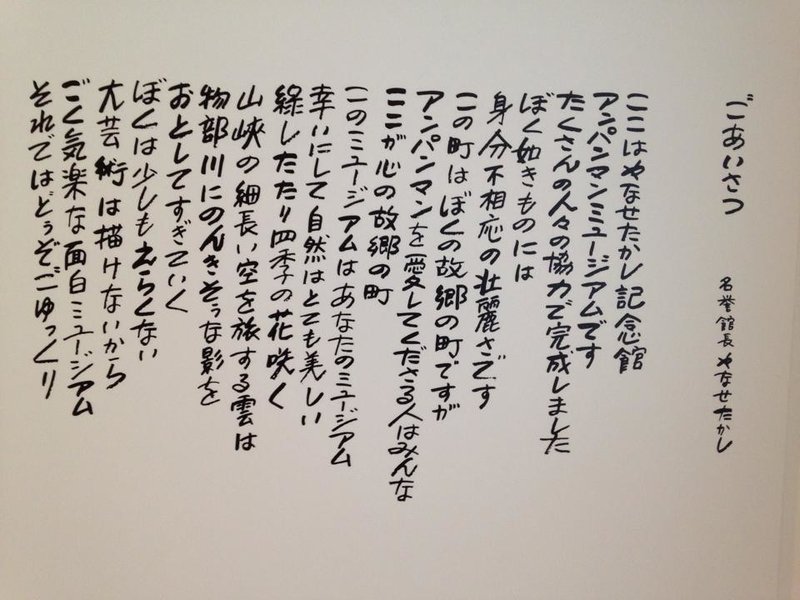 ごあいさつ
名誉館長 やなせたかし
ここはやなせたかし記念館
アンパンマンミュージアムです
たくさんの人々の協力で完成しました
ぼく如きものには
身分不相応の壮麗さです
この町はぼくの故郷の町ですが
アンパンマンを愛してくださる人はみんな
ここが心の故郷の町
このミュージアムはあなたのミュージアム
幸いにして自然はとても美しい
緑したたり四季の花咲く
山峡の細長い空を旅する雲は
物部川にのんきそうな影を
おとしてすぎていく
ぼくは少しもえらくない
大芸術は描けないから
ごく気楽な面白ミュージアム
それではどうぞごゆっくり